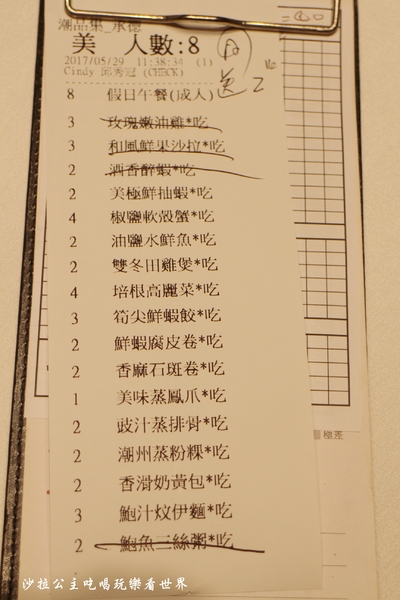 潮品集_承德
美 人數:8
2017/05/29 11:38:34 (1)
Cindy 邱秀冠 (CHECK)
8 假日午餐(成人)
3 玫瑰嫩油雞*吃
3 和風鮮果沙拉*吃
2 酒香醉蝦*吃
2 美極鮮抽蝦*吃
4 椒鹽軟殼蟹*吃
2 油鹽水鮮魚*吃
2 雙冬田雞煲*吃
4 培根高麗菜*吃
3 筍尖鮮蝦餃*吃
2 鮮蝦腐皮卷*吃
2 香麻石斑卷*吃
1 美味蒸鳳爪*吃
2 豉汁蒸排骨*吃
2 潮州蒸粉粿*吃
2 香滑奶黃包*吃
3 鮑汁炆伊麵*吃
2 鮑魚三絲粥*吃
沙拉公主吃喝玩樂看世界